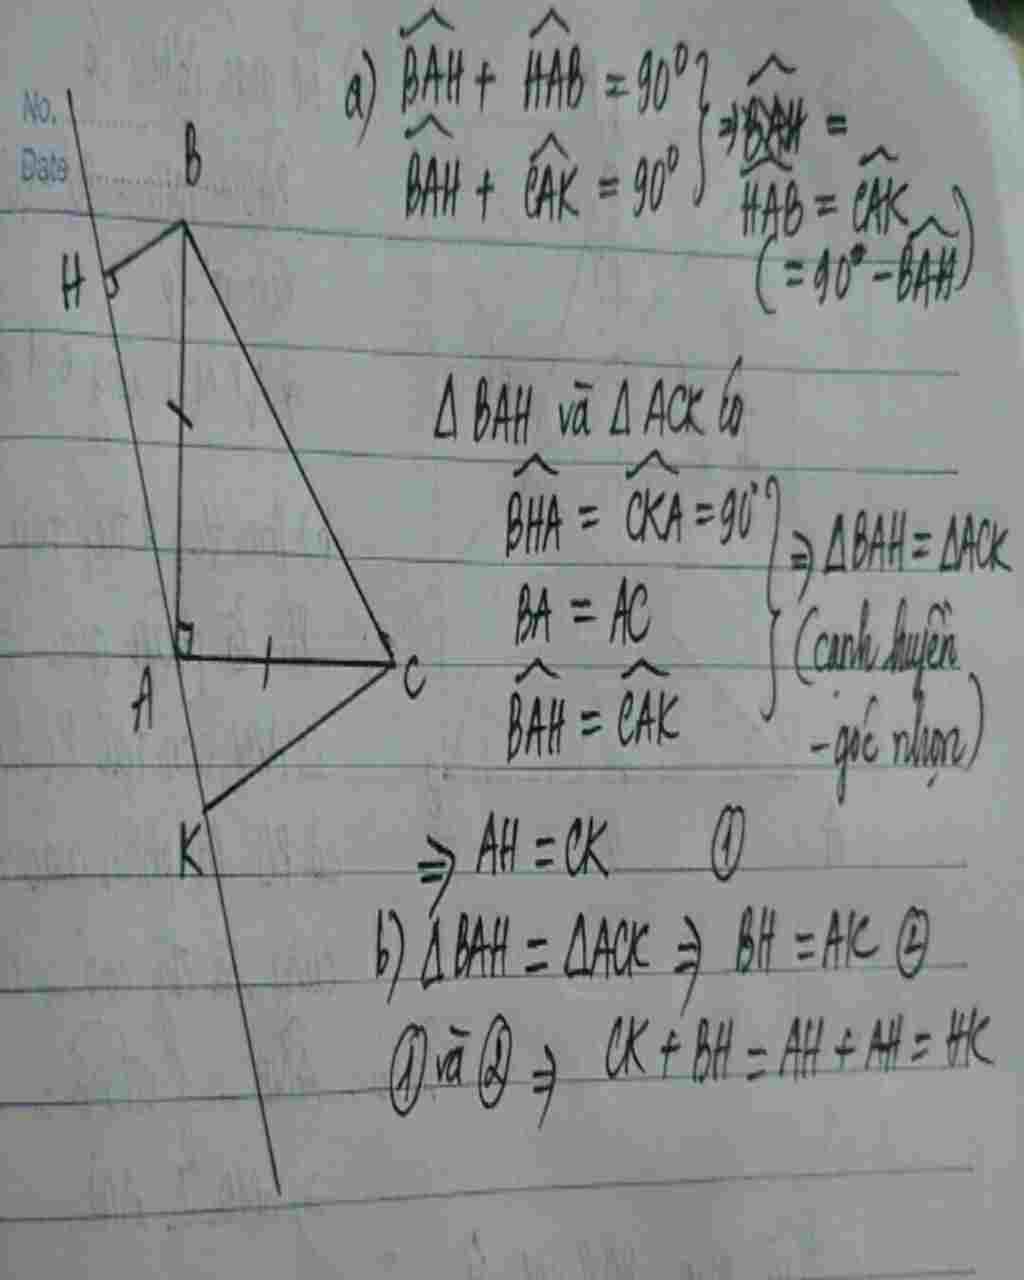 No.
Date
B
H
A
C
K
a) \widehat{BAH} + \widehat{HAB} = 90° } ⇒ \widehat{HAB} = \widehat{CAK}
\widehat{BAH} + \widehat{CAK} = 90°
(= 90° - \widehat{BAH})
Δ BAH và Δ ACK có
\widehat{BHA} = \widehat{CKA} = 90° } ⇒ Δ BAH = Δ ACK
BA = AC
(cạnh huyền
\widehat{BAH} = \widehat{CAK}
- góc nhọn)
⇒ AH = CK ①
b) Δ BAH = Δ ACK ⇒ BH = AK ②
① và ② ⇒ CK + BH = AH + AH = HK